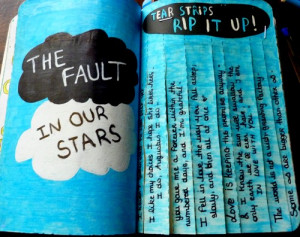 THE
FAULT
IN OUR
STARS
TEAR STRIPS
RIP IT UP!
I like my choices I hope she likes hers.
I do, Augustus I do -
you gave me a forever within the
numbered days, and I'm grateful
I fell in love the way you fall asleep:
slowly, and then all at once
Love is keeping the promise anyway
& I know
in love with you
The world is not a wish granting factory
Some are bigger than other